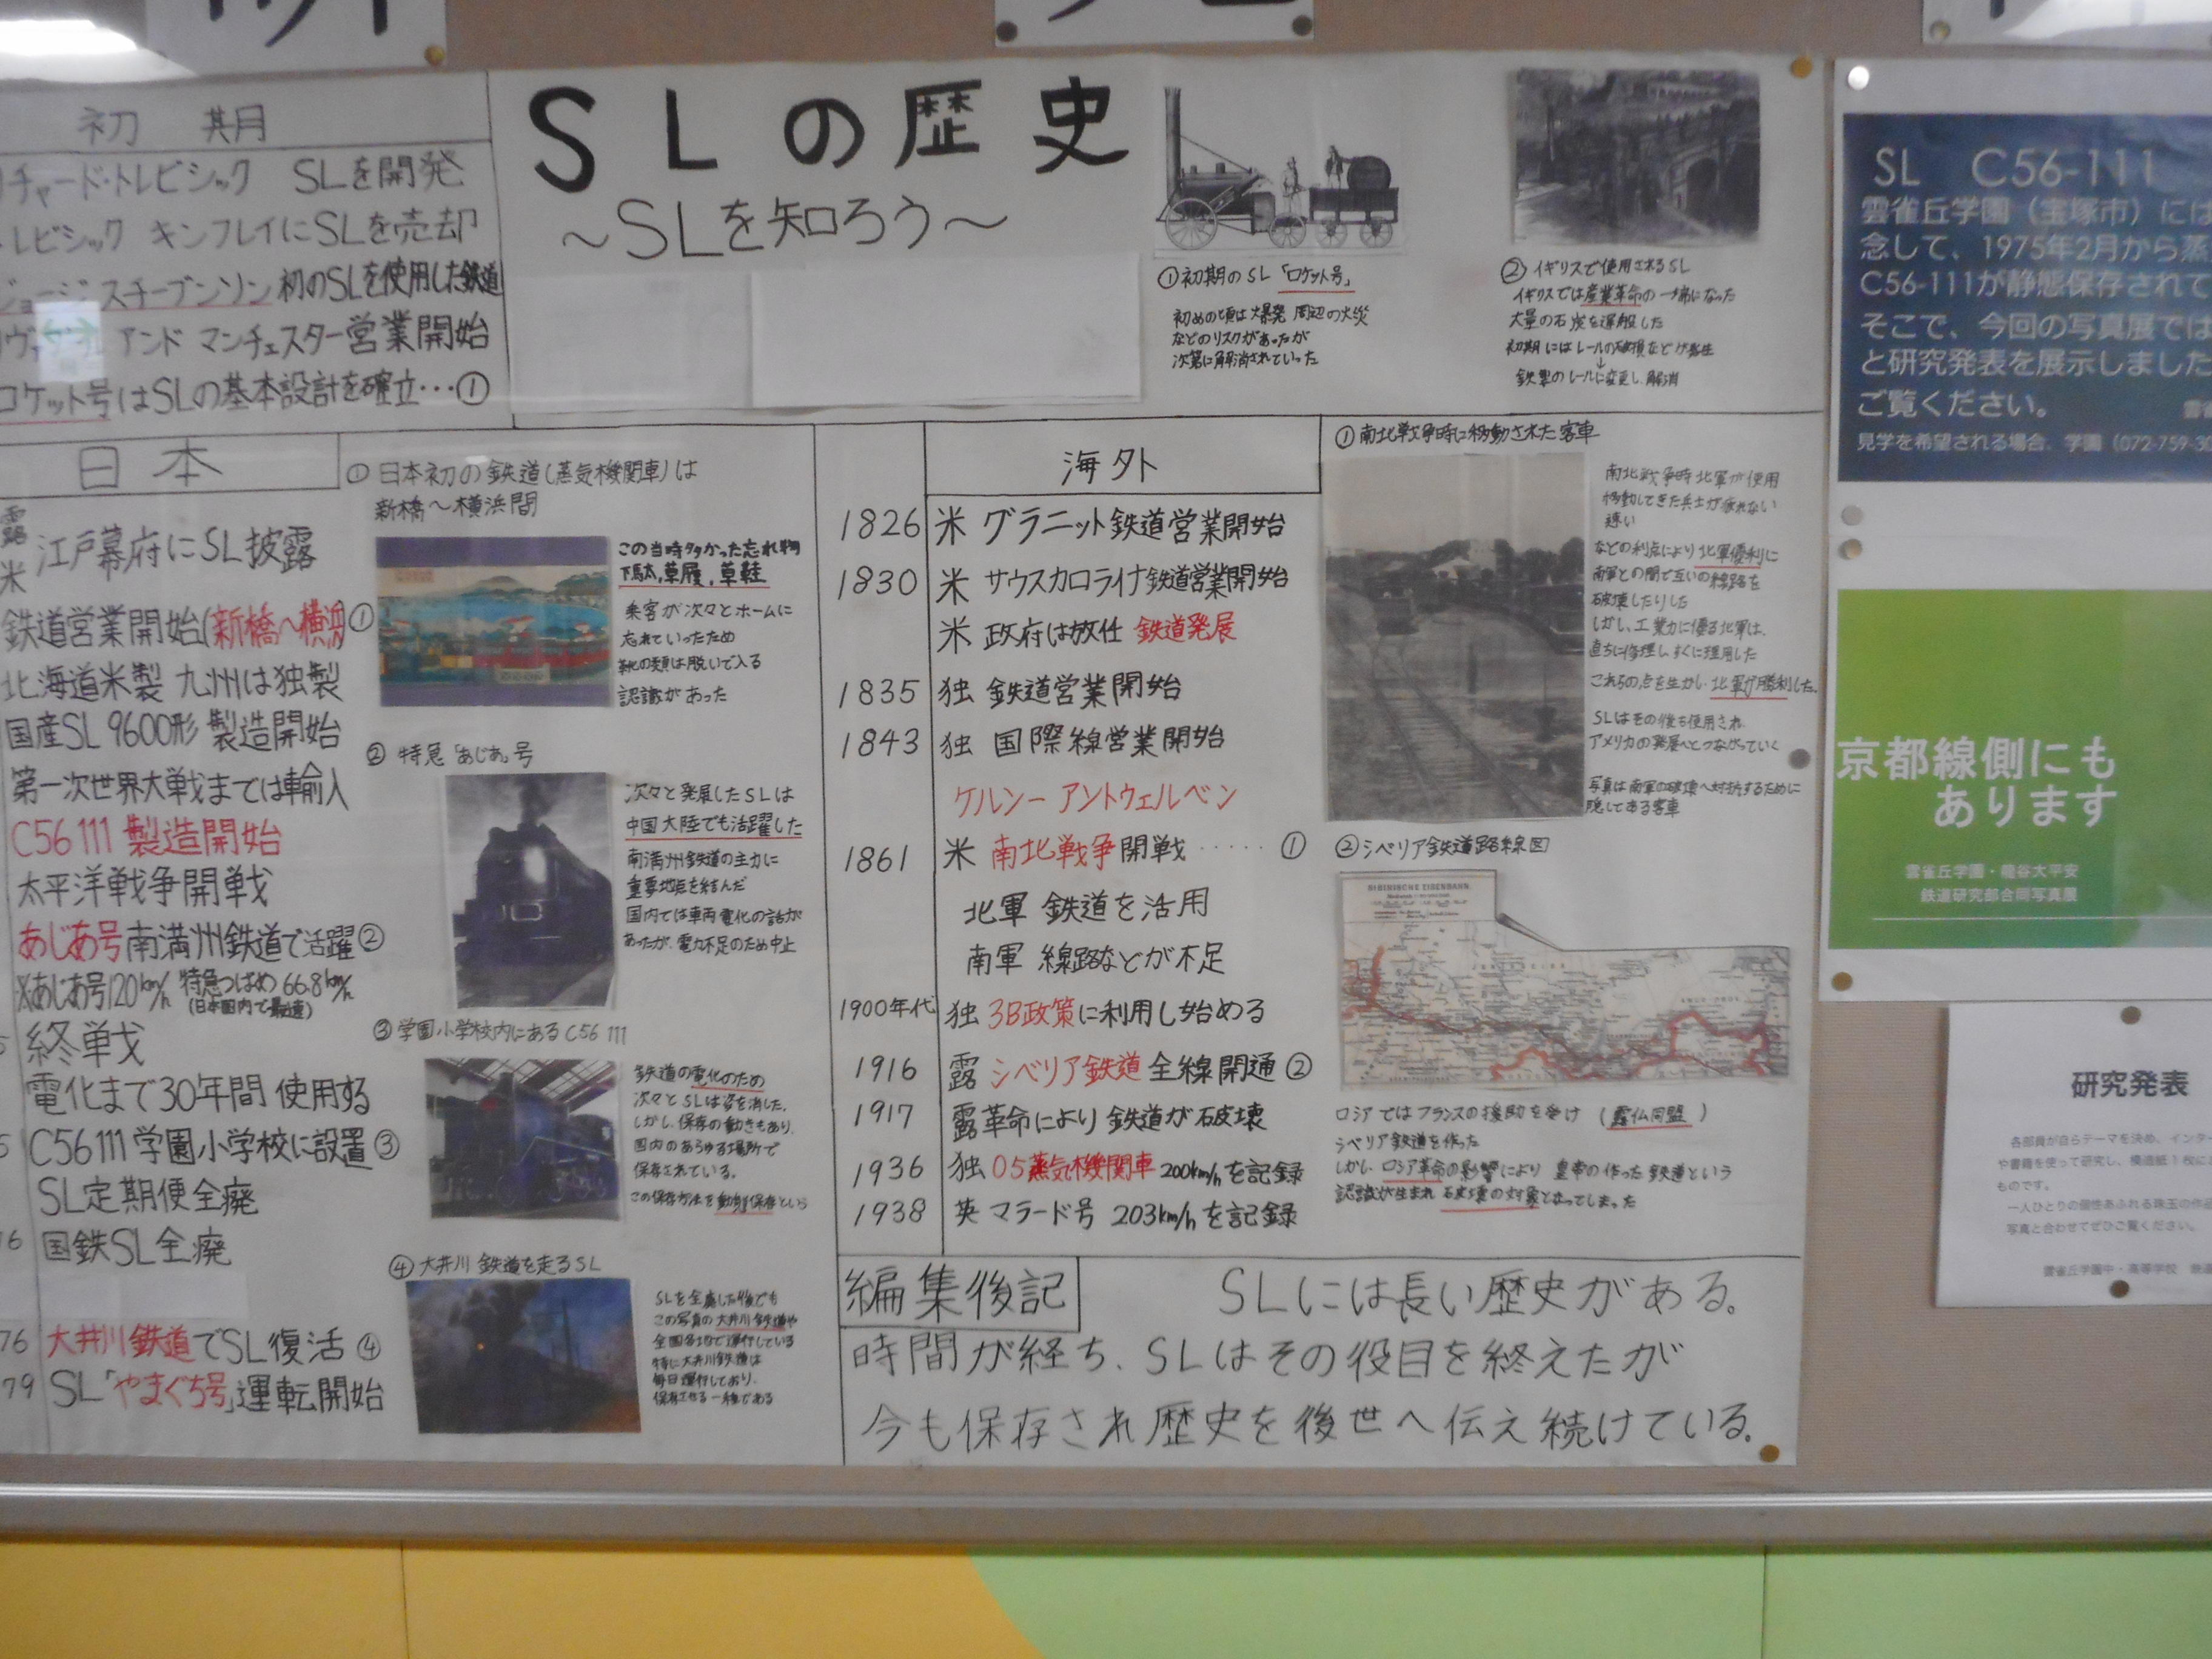 SLの歴史
～SLを知ろう～
初期
チャード・トレビシック SLを開発
レビシック キンフレイにSLを売却
ジョージ・スチーブンソン 初のSLを使用した鉄道
アンド マンチェスター営業開始
ロケット号はSLの基本設計を確立…①
①初期のSL「ロケット号」
初めの頃は爆発 周辺の火災
などのリスクがあったが
次第に解消されていった
②イギリスで使用されるSL
イギリスでは産業革命の一端になった
大量の石炭を運搬した
初期にはレールの破損などが発生
↓
鉄製のレールに変更し、解消
日本
露
米
江戸幕府にSL披露
鉄道営業開始(新橋～横浜)①
北海道米製 九州は独製
国産SL 9600形 製造開始
第一次世界大戦までは輸入
C56 111 製造開始
太平洋戦争開戦
あじあ号南満州鉄道で活躍②
※あじあ号120km/h 特急つばめ 66.8km/h
(日本国内で最速)
終戦
電化まで30年間 使用する
C56 111 学園小学校に設置③
SL定期便全廃
国鉄SL全廃
76 大井川鉄道でSL復活④
79 SL「やまぐち号」運転開始
①日本初の鉄道(蒸気機関車)は
新橋～横浜間
この当時多かった忘れ物
下駄,草履,草鞋
乗客が次々とホームに
忘れていったため
靴の類は脱いで入る
認識があった
②特急「あじあ」号
次々と発展したSLは
中国大陸でも活躍した
南満州鉄道の主力に
重要地点を結んだ
国内では車両電化の話が
あったが、電力不足のため中止
③学園小学校内にあるC56 111
鉄道の電化のため
次々とSLは姿を消した。
しかし、保存の動きもあり、
国内のあらゆる場所で
保存されている。
この保存方法を動態保存という
④大井川鉄道を走るSL
SLを全廃した後でも
この写真の大井川鉄道や
全国各地で運行している
特に大井川鉄道は
毎日運行しており、
保存させる一種である
海外
1826 米 グラニット鉄道営業開始
1830 米 サウスカロライナ鉄道営業開始
米 政府は放任 鉄道発展
1835 独 鉄道営業開始
1843 独 国際線営業開始
ケルンー アントウェルペン
1861 米 南北戦争開戦 ····· ①
北軍 鉄道を活用
南軍 線路などが不足
1900年代 独 3B政策に利用し始める
1916 露 シベリア鉄道 全線開通②
1917 露革命により 鉄道が破壊
1936 独 05蒸気機関車 200km/hを記録
1938 英 マラード号 203km/hを記録
①南北戦争時に移動された客車
南北戦争時北軍が使用
移動してきた兵士が疲れない
速い
などの利点により北軍優利に
南軍との間で互いの線路を
破壊したりした
しかし、工業力に優る北軍は、
直ちに修理し、すぐに運用した
これらの点を生かし、北軍が勝利した。
SLはその後も使用され
アメリカの発展へとつながっていく
写真は南軍の破壊へ対抗するために
隠してある客車
②シベリア鉄道路線図
RHEINISCHE EISENBAHN
ロシアではフランスの援助を受け (露仏同盟)
シベリア鉄道を作った
しかし ロシア革命の影響により 皇帝の作った鉄道という
認識が生まれ 破壊の対象となってしまった
編集後記
SLには長い歴史がある。
時間が経ち、SLはその役目を終えたが
今も保存され歴史を後世へ伝え続けている。
SL C56-111
雲雀丘学園(宝塚市)には
念して、1975年2月から蒸
C56-111が静態保存されて
そこで、今回の写真展では
と研究発表を展示しました
ご覧ください。
見学を希望される場合、学園(072-759-30
京都線側にも
あります
雲雀丘学園・龍谷大平安
鉄道研究部合同写真展
研究発表
各部員が自らテーマを決め、インター
や書籍を使って研究し、模造紙1枚に
ものです。
一人ひとりの個性あふれる珠玉の作品
写真と合わせてぜひご覧ください。
雲雀丘学園中・高等学校 鉄道